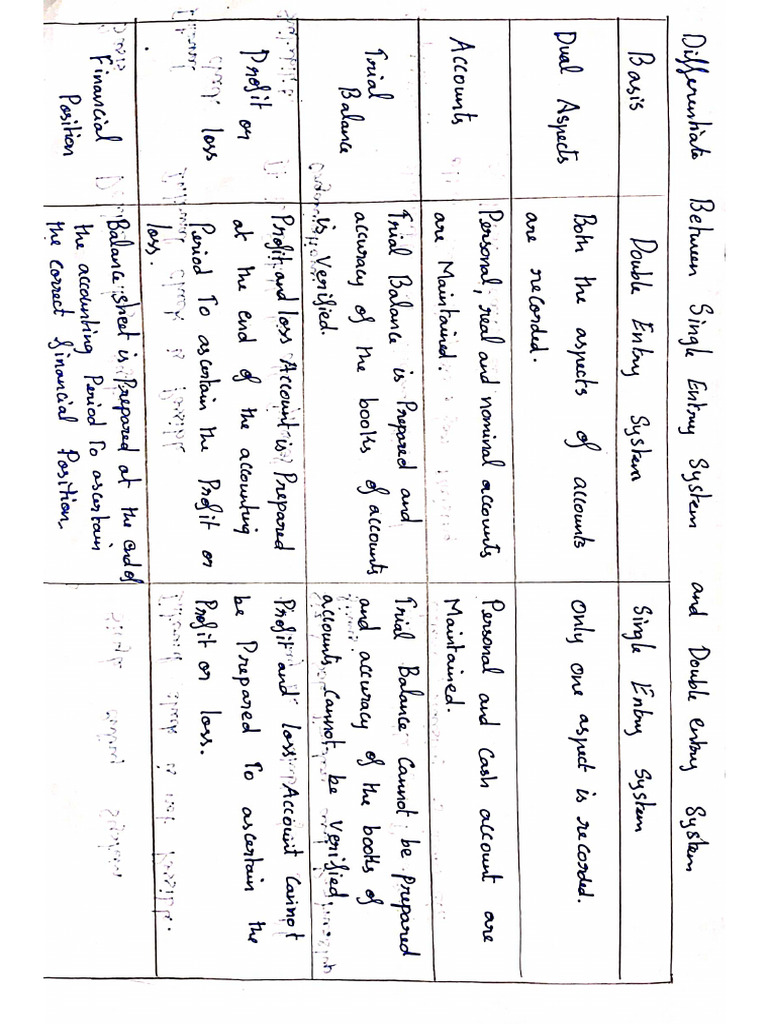 Differentiate Between Single Entry System and Double entry System
Basis
Double Entry System
Single Entry System
Dual Aspects
Both the aspects of accounts
are recorded.
Only one aspect is recorded.
Accounts
Personal, real and nominal accounts
are Maintained.
Personal and Cash account are
Maintained.
Trial
Balance
Trial Balance is Prepared and
accuracy of the books of accounts
is Verified.
Trial Balance Cannot be prepared
and accuracy of the books of
accounts cannot be verified.
Profit or
loss
Profit and loss Account is Prepared
at the end of the accounting
Period To ascertain the Profit or
loss.
Profit and loss Account Cannot
be Prepared To ascertain the
Profit or loss.
Financial
Position
Balance sheet is Prepared at the end of
the accounting Period To ascertain
the correct financial Position.